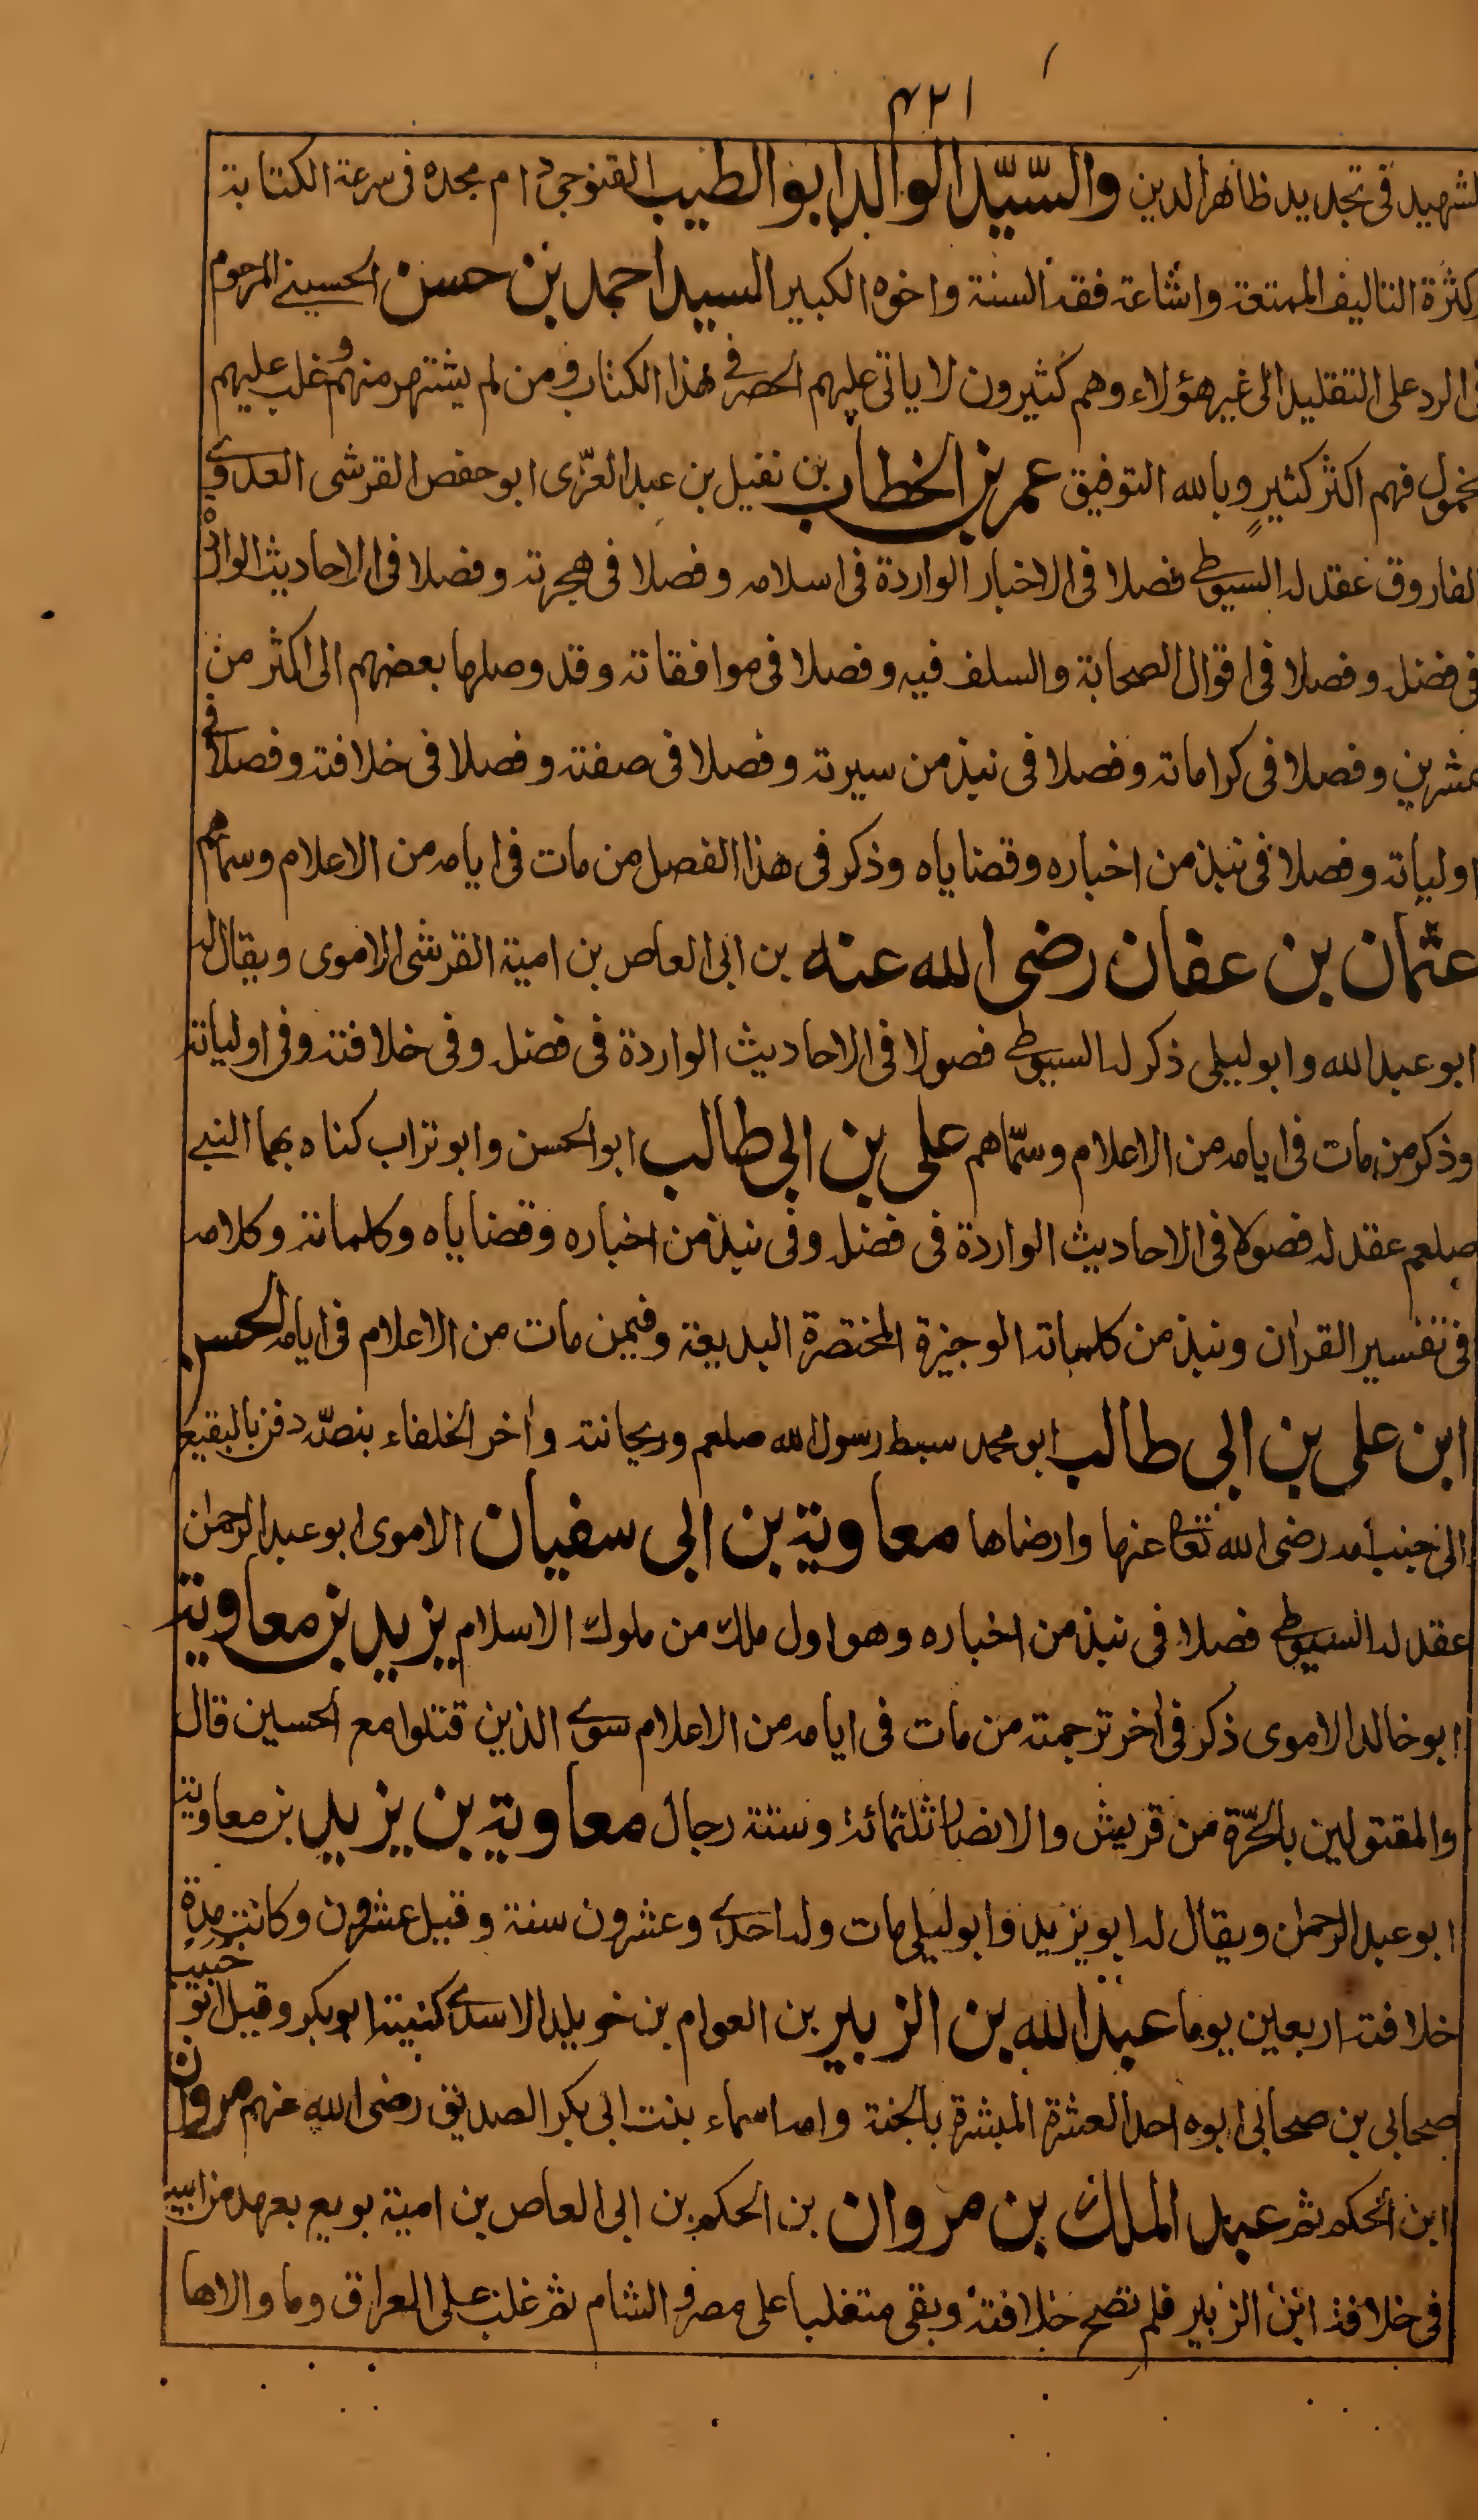 ٤٢١
لشهيد فى تجديد ظاهر الدين والسّيّد الوالد ابو الطيب القنوجى دام مجده فى سرعة الكتابة
كثرة التاليف الممتعة واشاعة فقه السنة واخوه الكبير السيد احمد بن حسن الحسينى المرحوم
فى الرد على التقليد الى غير هؤلاء وهم كثيرون لا ياتى عليهم الحصر فى هذا الكتاب ومن لم يشتهر منهم وغلب عليهم
لخمول فهم اكثر كثيرٍ وبالله التوفيق عمر بن الخطاب بن نفيل بن عبد العزّى ابو حفص القرشى العدوى
لفاروق عقد له السيوطى فصلا فى الاخبار الواردة فى اسلامه وفصلا فى هجرته وفصلا فى الاحاديث الواردة
فى فضله وفصلا فى اقوال الصحابة والسلف فيه وفصلا فى موافقاته وقد وصلها بعضهم الى اكثر من
عشرين وفصلا فى كراماته وفصلا فى نبذ من سيرته وفصلا فى صفته وفصلا فى خلافته وفصلا فى
اولياته وفصلا فى نبذ من اخباره وقضاياه وذكر فى هذا الفصل من مات فى ايامه من الاعلام وسماهم
عثمان بن عفان رضى الله عنه بن ابى العاص بن امية القرشى الاموى ويقال له
ابو عبد الله وابو ليلى ذكر له السيوطى فصولا فى الاحاديث الواردة فى فضله وفى خلافته وفى اولياته
وذكر من مات فى ايامه من الاعلام وسمّاهم على بن ابى طالب ابو الحسن وابو تراب كناه بهما النبى
صلعم عقد له فصولا فى الاحاديث الواردة فى فضله وفى نبذ من اخباره وقضاياه وكلماته وكلامه
فى تفسير القران ونبذ من كلماته الوجيزة المختصرة البديعة وفيمن مات من الاعلام فى ايامه الحسن
ابن على بن ابى طالب ابو محمد سبط رسول الله صلعم وريحانته وأخر الخلفاء بنصّه دفن بالبقيع
الى جنب أمه رضى الله تعالى عنها وارضاها معاوية بن ابى سفيان الاموى ابو عبد الرحمٰن
عقد له السيوطى فصلا فى نبذ من اخباره وهو اول ملك من ملوك الاسلام يزيد بن معاوية
ابو خالد الاموى ذكر فى أخر ترجمته من مات فى ايامه من الاعلام سوى الذين قتلوا مع الحسين قال
والمقتولين بالحّرة من قريش والانصار ثلثمائة وستة رجال معاوية بن يزيد بن معاوية
ابو عبد الرحمٰن ويقال له ابو يزيد وابو ليلى مات وله احدى وعشرون سنة وقيل عشرون وكانت مدة
خلافته اربعين يوما عبد الله بن الزبير بن العوام بن خويلد الاسدى كنيته ابو بكر وقيل ابو خبيب
صحابى بن صحابى ابوه احد العشرة المبشرة بالجنة وامه اسماء بنت ابى بكر الصديق رضى الله عنهم مروان
ابن الحكم ثم عبد الملك بن مروان بن الحكم بن ابى العاص بن امية بويع بعهد من ابيه
فى خلافة ابن الزبير فلم تصح خلافته وبقى متغلبا على مصر والشام ثم غلب على العراق وما والاها